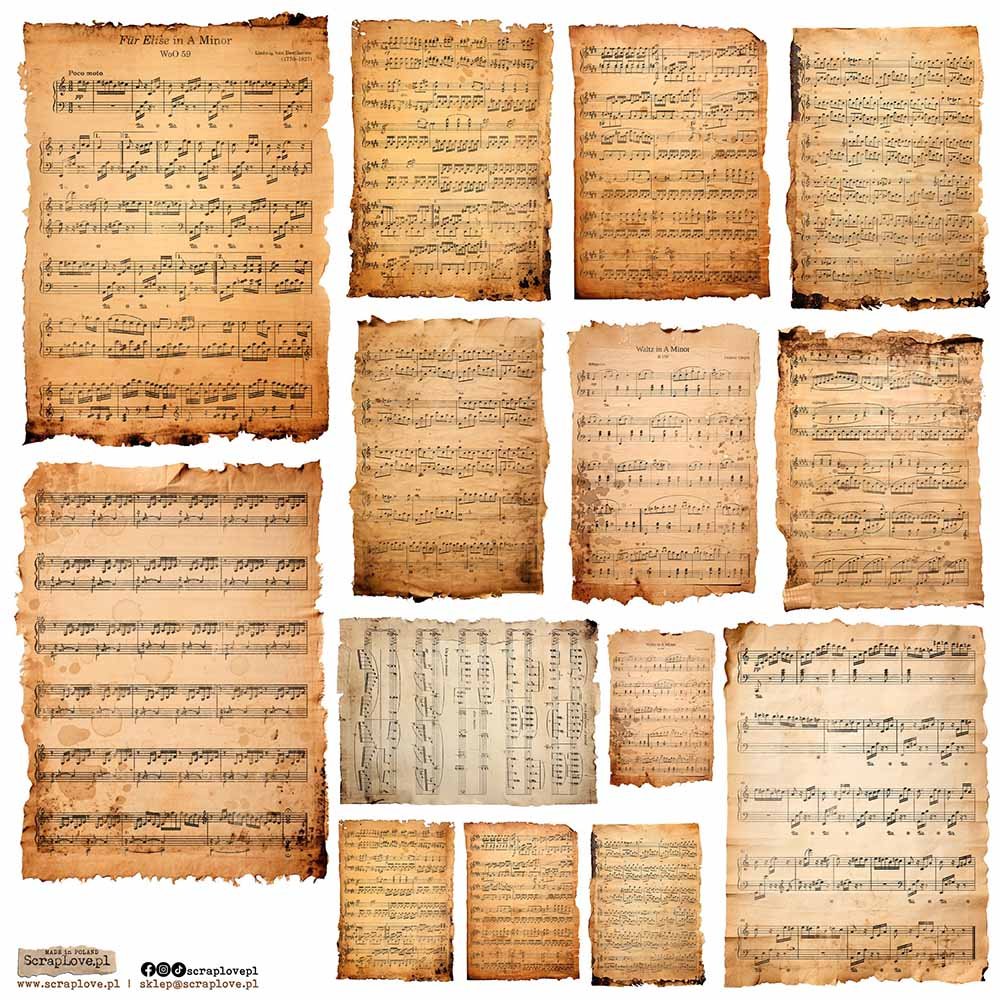 Für Elise in A Minor
WoO 59
Ludwig van Beethoven
(1770-1827)
Poco moto
Waltz in A Minor
Waltz in A Minor
MADE in POLAND
ScrapLove.pl
scraplovepl
www.scraplove.pl | sklep@scraplove.pl